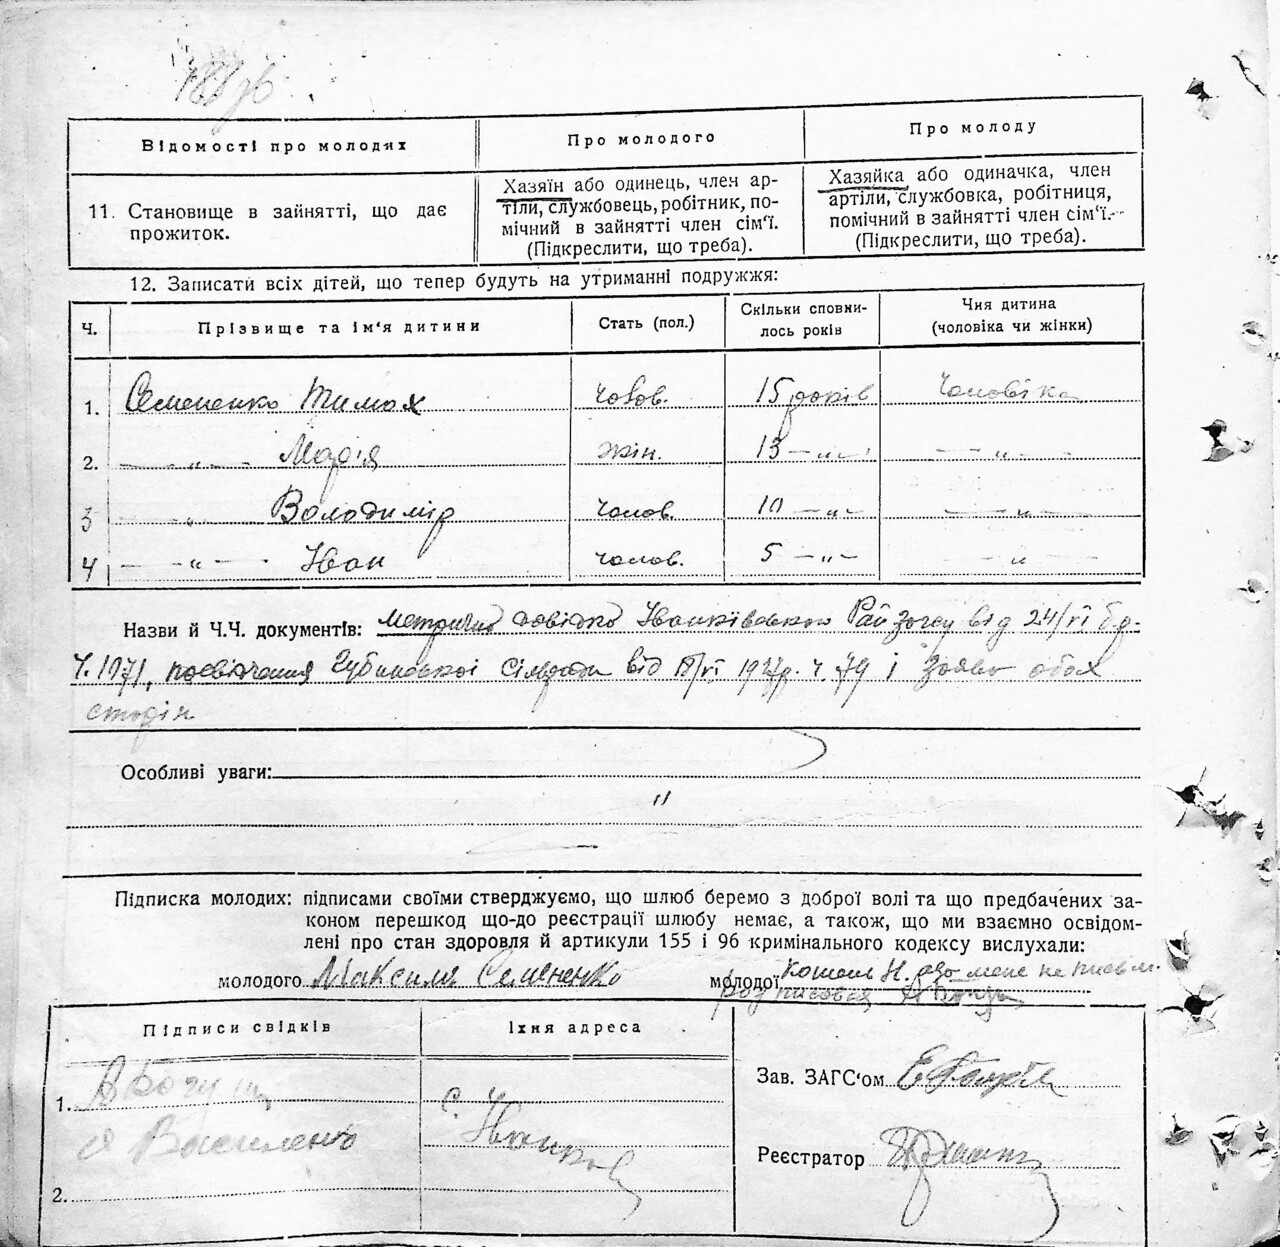 Відомості про молодих
Про молодого
Про молоду
11. Становище в зайнятті, що дає прожиток.
Хазяїн або одинець, член ар-
тіли, службовець, робітник, по-
мічний в зайнятті член сім'ї.
(Підкреслити, що треба).
Хазяйка або одиначка, член
артіли, службовка, робітниця,
помічний в зайнятті член сім'ї.
(Підкреслити, що треба).
12. Записати всіх дітей, що тепер будуть на утриманні подружжя:
Ч. Прізвище та ім'я дитини Стать (пол.) Скільки сповни-лось років Чия дитина (чоловіка чи жінки)
1. Семененко Тимох чолов. 15 років Чоловіка
2. — „ — Марія жін. 13 — „ — — „ —
3 — „ — Володимір чолов. 10 — „ — — „ —
4 — „ — Іван чолов. 5 — „ — — „ —
Назви й Ч.Ч. документів: метрична довідка Іванківського Райзагсу від 24/VI б.р.
Ч. 1971, посвідчення сільради від 1927р. ч. 79 і заява обох
сторін
Особливі уваги:
„
Підписка молодих: підписами своїми стверджуємо, що шлюб беремо з доброї волі та що предбачених за-
коном перешкод що-до реєстрації шлюбу немає, а також, що ми взаємно освідом-
лені про стан здоровля й артикули 155 і 96 кримінального кодексу вислухали:
молодого Максим Семененко молодої Н. а за мене не письм.
розписався
Підписи свідків
Їхня адреса
1. А Богун
Василенко
2.
с. Іванків
Зав. ЗАГС'ом
Реєстратор